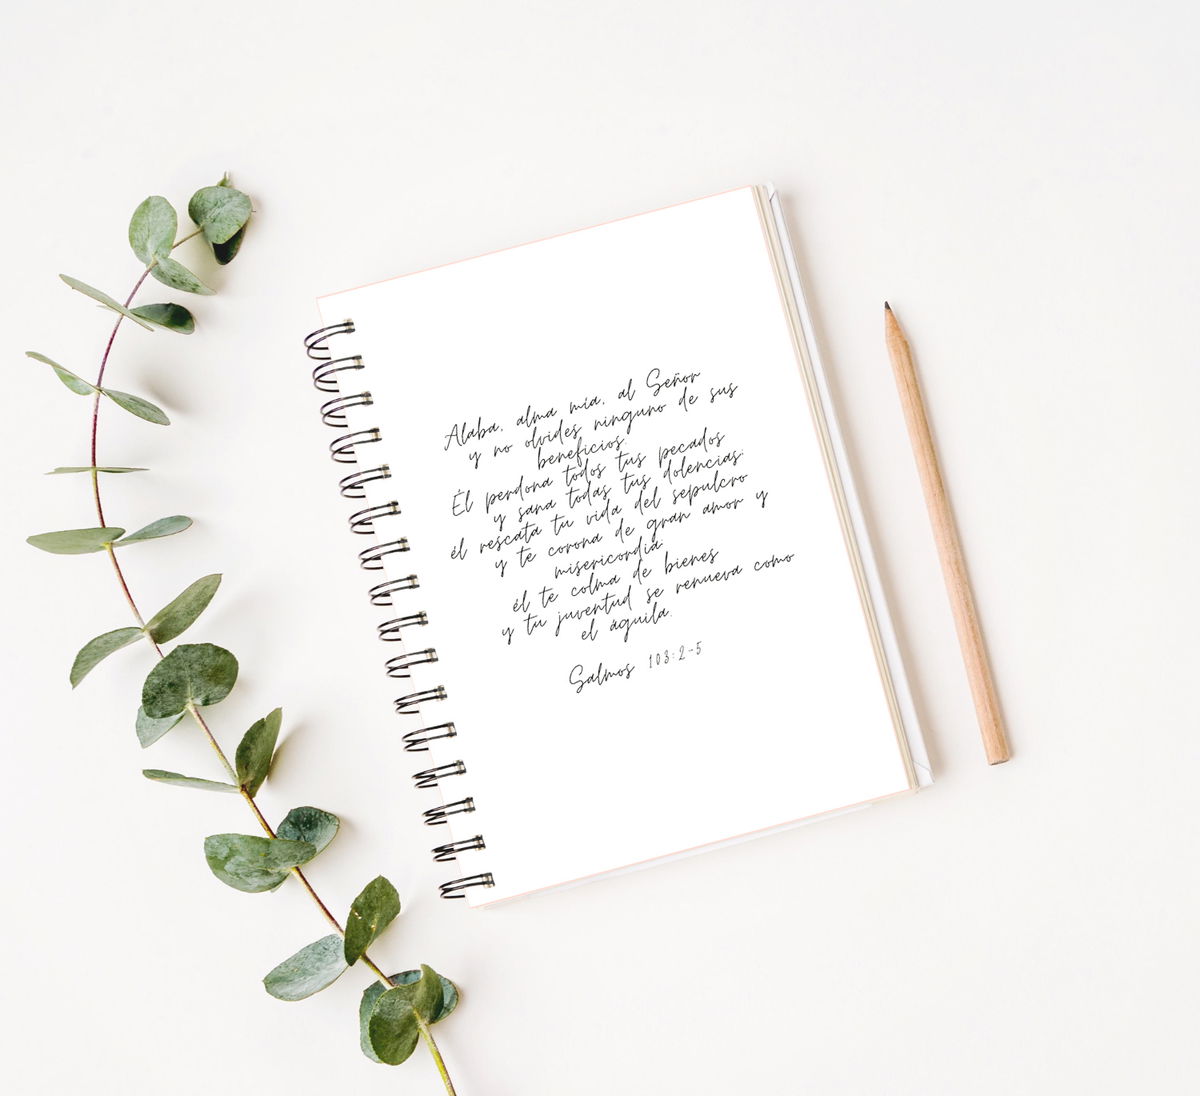 Alaba, alma mía, al Señor
y no olvides ninguno de sus
beneficios.
Él perdona todos tus pecados
y sana todas tus dolencias;
él rescata tu vida del sepulcro
y te corona de gran amor y
misericordia;
él te colma de bienes
y tu juventud se renueva como
el águila.
Salmos 103:2-5